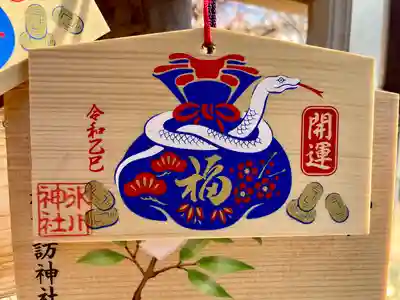 開運
福
令和乙巳
氷川
神社
訪神社